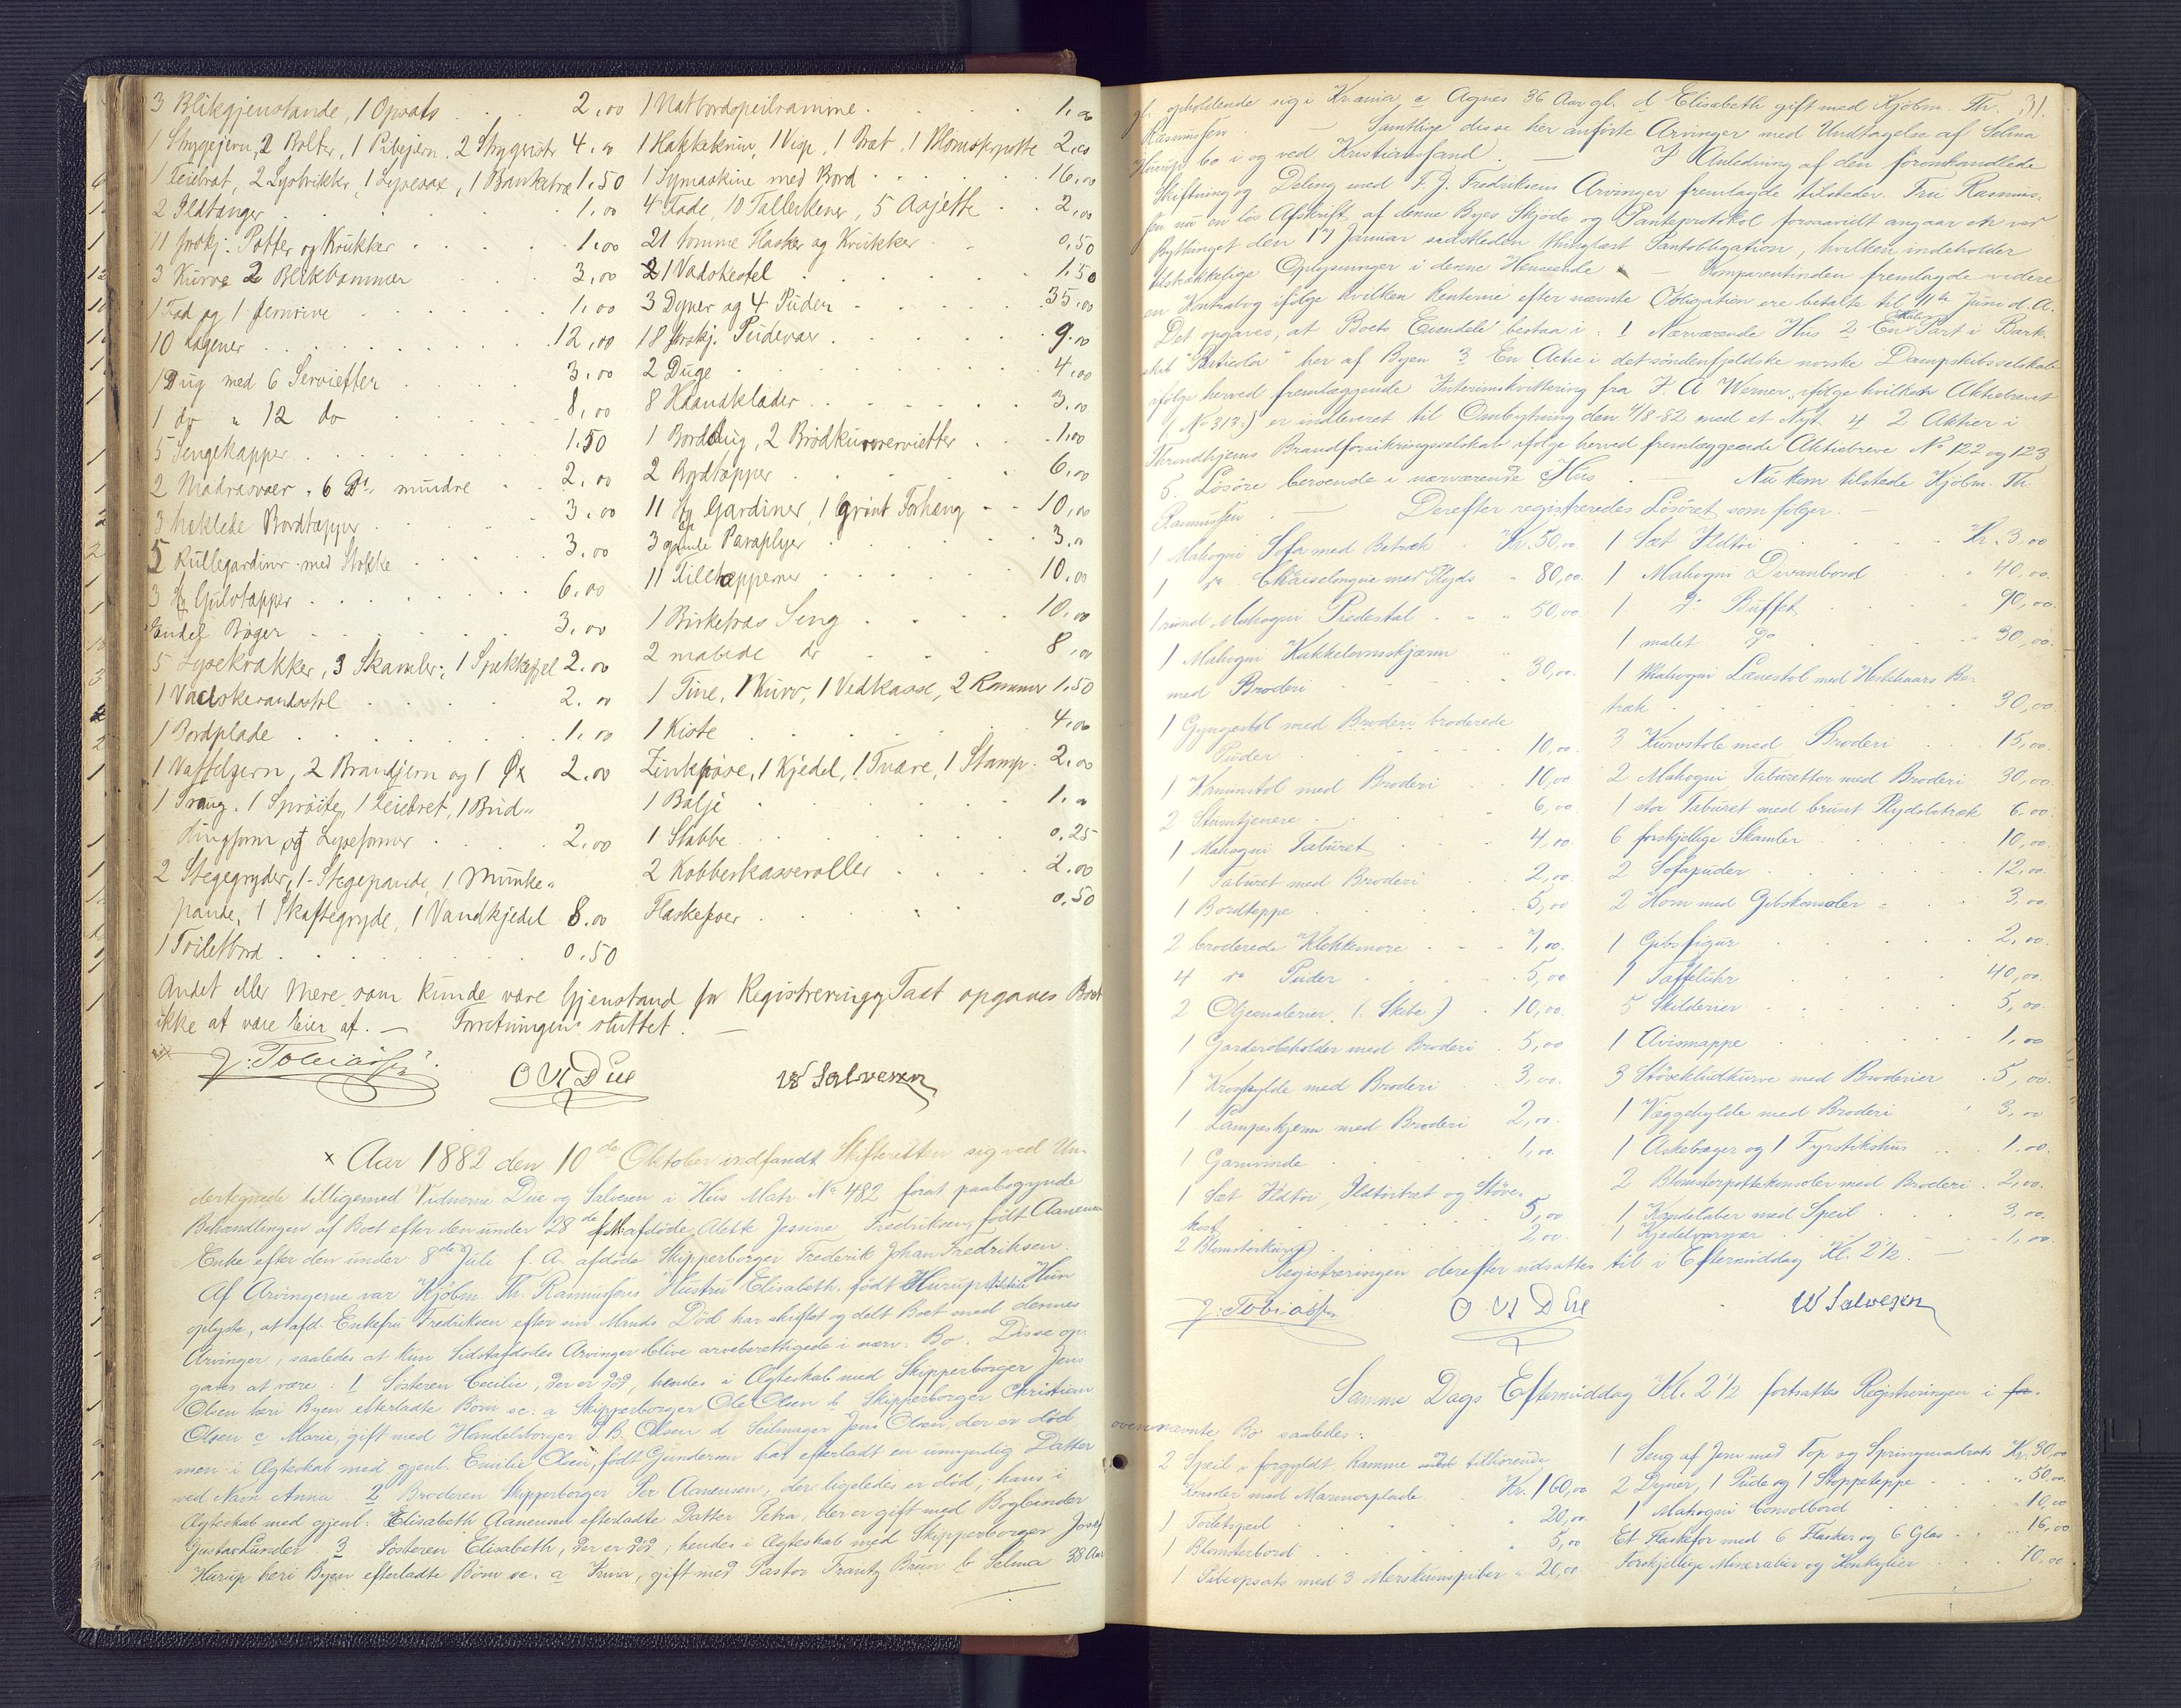 3 Blikgjenstande, 1 Opsats . . 2,00
1 Strygejern, 2 Bolter, 1 Pibejern, 2 Strygrister 4,00
1 Feiebrat, 2 Lysbrikker, 1 Lysesax, 1 Banke 1,50
2 Ildtanger . . . 1,00
11 forskj. Potter og Krukker . . . 1,00
3 Kurve 2 Blikbommer . . 3,00
1 Fad og 1 Jernrive . . . 1,00
10 Lagener . . . 12,00
1 Dug med 6 Servietter . . . 3,00
1 do " 12 do . . . 8,00
5 Sengekapper . . . 1,50
2 Madrasvaer, 6 mindre . 2,00
3 heklede Bordtepper . . . 3,00
5 Rullegardiner med Stokke . . 3,00
3 Gulvtæpper . . . 6,00
Endel Bøger . . . 3,00
5 Lysekrakker, 3 Skamler, 1 2,00
1 Vadskevandsstol . . . 2,00
1 Bordplade . . . 1,00
1 Vaffeljern, 2 Brandjern og 1 Øx 2,00
1 Traug, 1 Sprøite, 1 Feiebret, 1 Bud-
dingform og Lyseformer . . 2,00
2 Stegegryder, 1 Stegepande, 1 Munke-
pande, 1 Skaftegryde, 1 Vandkjedel 8,00
1 Toiletbord . . . 0,50
1 Natbordspeilramme . . . 1,00
1 Hakkekniv, 1 Visp, 1 Brat, 1 Blomsterpotte 2,00
1 Symaskine med Bord . . . 16,00
4 Fade, 10 Tallerkener, 5 Asjetter . . 2,00
21 tomme Flasker og Krukker . 0,50
1 Vadskestel . . . 1,50
3 Dyner og 4 Puder . . . 35,00
18 forskj. Pudevar . . . 9,00
2 Duge . . . 4,00
8 Haandklæder . . . 3,00
1 Borddug, 2 Brødkurvservietter . . 1,00
2 Bordtæpper . . . 6,00
11 Fag Gardiner, 1 grønt Forhæng . . 10,00
3 gamle Paraplyer . . . 3,00
11 Filletæpper . . . 10,00
1 Birketræs Seng . . . 10,00
2 malede do . . . 8,00
1 Tine, 1 Kurv, 1 Vedkasse, 2 Rammer 1,50
1 Kiste . . . 4,00
Zinkpøse, 1 Kjedel, 1 Tvare, 1 Stamp. 2,00
1 Balje . . . 1,00
1 Stabbe . . . 0,25
2 Kobberkasseroller . . . 2,00
Flaskefoer . . . 0,50
Andet eller mere som kunde være Gjenstand for Registrering og Taxt opgaves Boet
ikke at være Eier af. — Forretningen sluttet. —
J. Tobiassen O M Due W Salvesen
× Aar 1882 den 10de Oktober indfandt Skifteretten sig ved Un-
dertegnede tilligemed Vidnerne Due og Salvesen i Hus Matr. No 482 forat paabegynde
Behandlingen af Boet efter den under 28de f. M. afdøde Alette Jessine Fredriksen, født Aanensen
Enke efter den under 8de Juli f. A. afdøde Skipperborger Frederik Johan Fredriksen.
Af Arvingerne var Kjøbm. Th. Rasmussens Hustru Elisabeth født Hurup tilstede Hun
oplyste, at afd. Enkefru Fredriksen efter sin Mands Død har skiftet og delt Boet med dennes
Arvinger, saaledes at kun Sidstafdødes Arvinger blive arveberettigede i nærv. Bo. Disse op-
gaves at være: 1 Søsteren Cecilie, der er død, hendes i Ægteskab med Skipperborger Jens
Olsen heri Byen efterladte Børn se: a Skipperborger Ole Olsen b Skipperborger Christian
Olsen c Marie, gift med Handelsborger P. B. Olsen d Seilmager Jens Olsen, der er død
men i Ægteskab med gjenl. Emilie Olsen, født Gundersen har efterladt en umyndig Datter
ved Navn Anna 2 Broderen Skipperborger Per Aanensen, der ligeledes er død; hans i
Ægteskab med gjenl. Elisabeth Aanensen efterladte Datter Petra, der er gift med Bogbinder
Gustav Lunder 3 Søsteren Elisabeth, der er død; hendes i Ægteskab med Skipperborger Josef
Hurup heri Byen efterladte Børn se: a Trina, gift med Pastor Frantz Bruun b Selma 38 Aar
31.
gl. opholdende sig i Kr.ania c Agnes 36 Aar gl. d Elisabeth gift med Kjøbm. Th.
Rasmussen. — Samtlige disse her anførte Arvinger med Undtagelse af Selma
Hurup bo i og ved Kristianssand. — I Anledning af den foromhandlede
Skiftning og Deling med F. J. Fredriksens Arvinger fremlagde tilstedev. Fru Rasmus-
sen nu en løs Afskrift af denne Byes Skjøde og Panteprotokol forsaavidt angaar en ved
Bythinget den 17 Januar sidstleden thinglæst Pantobligation, hvilken indeholder
tilstrækkelige Oplysninger i denne Henseende — Komparentinden fremlagde videre
en Kontrabog ifølge hvilken Renterne efter nævnte Obligation ere betalte til 11te Juni d. A.
Det opgaves, at Boets Eiendele bestaa i: 1 Nærværende Hus 2 En Part i Bark-
skib "Patricia" her af Byen 3 En Actie i det søndenfjeldske norske Dampskibsselskab
ifølge herved fremlæggende Interimskvittering fra F. A. Werner, ifølge hvilken Aktiebrevet
(No 313) er indleveret til Ombytning den 4/8-82 med et Nyt 4 2 Aktier i
Throndhjems Brandforsikringsselskab ifølge herved fremlæggende Aktiebreve No 122 og 123
5. Løsøre beroende i nærværende Hus. — Nu kom tilstede Kjøbm. Th.
Rasmussen. — Derefter registreredes Løsøret som følger. —
1 Mahogni Sofa med Betræk . Kr. 50,00
1 do Chaiselongue med Plyds " 80,00
1 rund Mahogni Piedestal . " 50,00
1 Mahogni Kakkelovnsskjærm
med Broderi . . . 30,00
1 Gyngestol med Broderi broderede
Puder . . . 10,00
1 Kaminstol med Broderi . . 10,00
2 Stumtjenere . . . 6,00
1 Mahogni Taburet . . . 4,00
1 Taburet med Broderi . . 2,00
1 Bordteppe . . . 5,00
2 broderede Klokkesnore . . 7,00
4 do Puder . . . 5,00
2 Oljemalerier. (Skibe) . 10,00
1 Garderobeholder med Broderi . 5,00
1 Kroghylde med Broderi . 3,00
1 Lampeskjerm med Broderi 2,00
1 Garnvinde . . . 1,00
1 Sæt Ildtøi, Ildtøibræt og Støve-
kost . . . 5,00
2 Blomsterkurve . . . 2,00
1 Sæt Ildtøi . . . Kr. 3,00
1 Mahogni Divanbord . . 40,00
1 do Buffet . . . 90,00
1 malet do . . . 30,00
1 Mahogni Lænestol med Hestehaars Be-
træk . . . 30,00
3 Kurvstole med Broderi . . 15,00
2 Mahogni Taburetter med Broderi 30,00
1 stor Taburet med brunt Plydsbetræk 6,00
6 forskjellige Skamler . . . 10,00
2 Sofapuder . . . 12,00
2 Horn med Gibskonsoler . . 3,00
1 Gibsfigur . . . 2,00
1 Taffeluhr . . . 40,00
5 Skilderier . . . 5,00
1 Avismappe . . . 1,00
3 Støvekludkurve med Broderier . 5,00
1 Væggehylde med Broderi . 3,00
1 Askebæger og 1 Fyrstikshus . . 1,00
2 Blomsterpottekonsoler med Broderi . 2,00
1 Kandelaber med Speil . . 3,00
1 Kjedelvarmer . . . 1,00
Registreringen derefter udsattes til i Eftermiddag Kl. 2½. —
J. Tobiassen O M Due W Salvesen
Samme Dags Eftermiddag Kl. 2½ fortsattes Registreringen i for-
ovennævnte Bo saaledes:
2 Speil i forgyldt Ramme med tilhørende
Konsoler med Marmorplade . Kr. 160,00
1 Toiletspeil . . . " 20,00
1 Blomsterbord . . . " 5,00
1 Pibeopsats med 3 Merskumspiber " 20,00
1 Seng af Jern med Top og Springmadrats Kr. 30,00
2 Dyner, 1 Pude og 1 Stoppeteppe . " 50,00
1 Mahogni Consolbord . . . 10,00
Et Flaskefor med 6 Flasker og 6 Glas . . 16,00
Forskjellige Mineralier og Konkylier . . 10,00